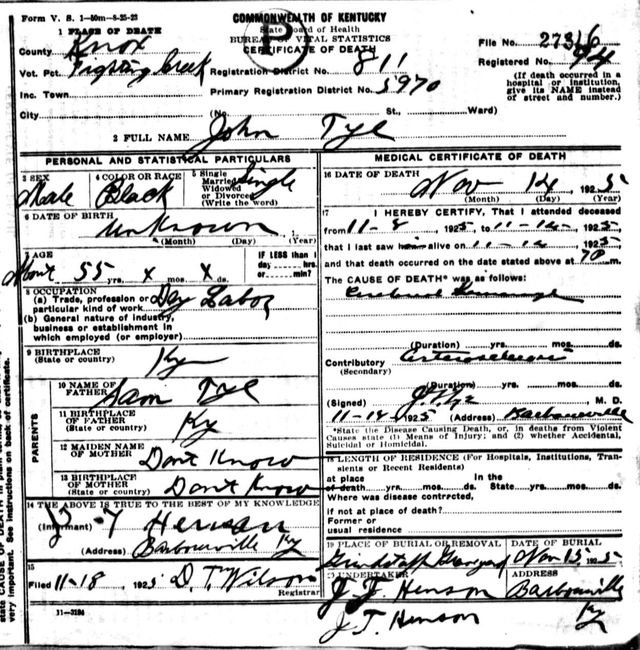 Form V. S. 1-50m-8-25-23
COMMONWEALTH OF KENTUCKY
State Board of Health
BUREAU OF VITAL STATISTICS
CERTIFICATE OF DEATH
P
1 PLACE OF DEATH
County Knox
Vot. Pct. Fighting Creek
Inc. Town
City
Registration District No. 811
Primary Registration District No. 5970
File No. 27316
Registered No. 94
(If death occurred in a
hospital or institution,
give its NAME instead
of street and number.)
(No. St., Ward)
2 FULL NAME John Tye
PERSONAL AND STATISTICAL PARTICULARS
3 SEX Male
4 COLOR OR RACE Black
5 Single
Married
Widowed
or Divorced
(Write the word) Single
6 DATE OF BIRTH
Unknown
(Month) (Day) (Year)
7 AGE
About 55 yrs. X mos. X ds.
IF LESS than 1
day hrs.
or min?
8 OCCUPATION
(a) Trade, profession or
particular kind of work Day Labor
(b) General nature of industry,
business or establishment in
which employed (or employer)
9 BIRTHPLACE
(State or country) Ky
PARENTS
10 NAME OF
FATHER Sam Tye
11 BIRTHPLACE
OF FATHER
(State or country) Ky
12 MAIDEN NAME
OF MOTHER Dont Know
13 BIRTHPLACE
OF MOTHER
(State or country) Dont Know
14 THE ABOVE IS TRUE TO THE BEST OF MY KNOWLEDGE
(Informant) J T Henson
(Address) Barbourville Ky
15
Filed 11-18, 1925 D. T. Wilson
Registrar
11-3184
MEDICAL CERTIFICATE OF DEATH
16 DATE OF DEATH
Nov 14, 1925
(Month) (Day) (Year)
17 I HEREBY CERTIFY, That I attended deceased
from 11-8, 1925, to 11-14-, 1925,
that I last saw him alive on 11-14, 1925
and that death occurred on the date stated above at m.
The CAUSE OF DEATH* was as follows:
Cerebral Hemorrhage
(Duration) yrs. mos. ds.
Contributory Arteriosclerosis
(Secondary)
(Duration) yrs. mos. ds.
(Signed) M. D.
11-14-1925 (Address) Barbourville
*State the Disease Causing Death, or, in deaths from Violent
Causes state (1) Means of Injury; and (2) whether Accidental,
Suicidal or Homicidal.
18 LENGTH OF RESIDENCE (For Hospitals, Institutions, Tran-
sients or Recent Residents)
at place In the
of death yrs. mos. ds. State yrs. mos. ds.
Where was disease contracted,
if not at place of death?
Former or
usual residence
19 PLACE OF BURIAL OR REMOVAL
DATE OF BURIAL
Nov 15, 1925
20 UNDERTAKER
J T Henson
ADDRESS
Barbourville
J T. Henson Ky
very important. See instructions on back of certificate.